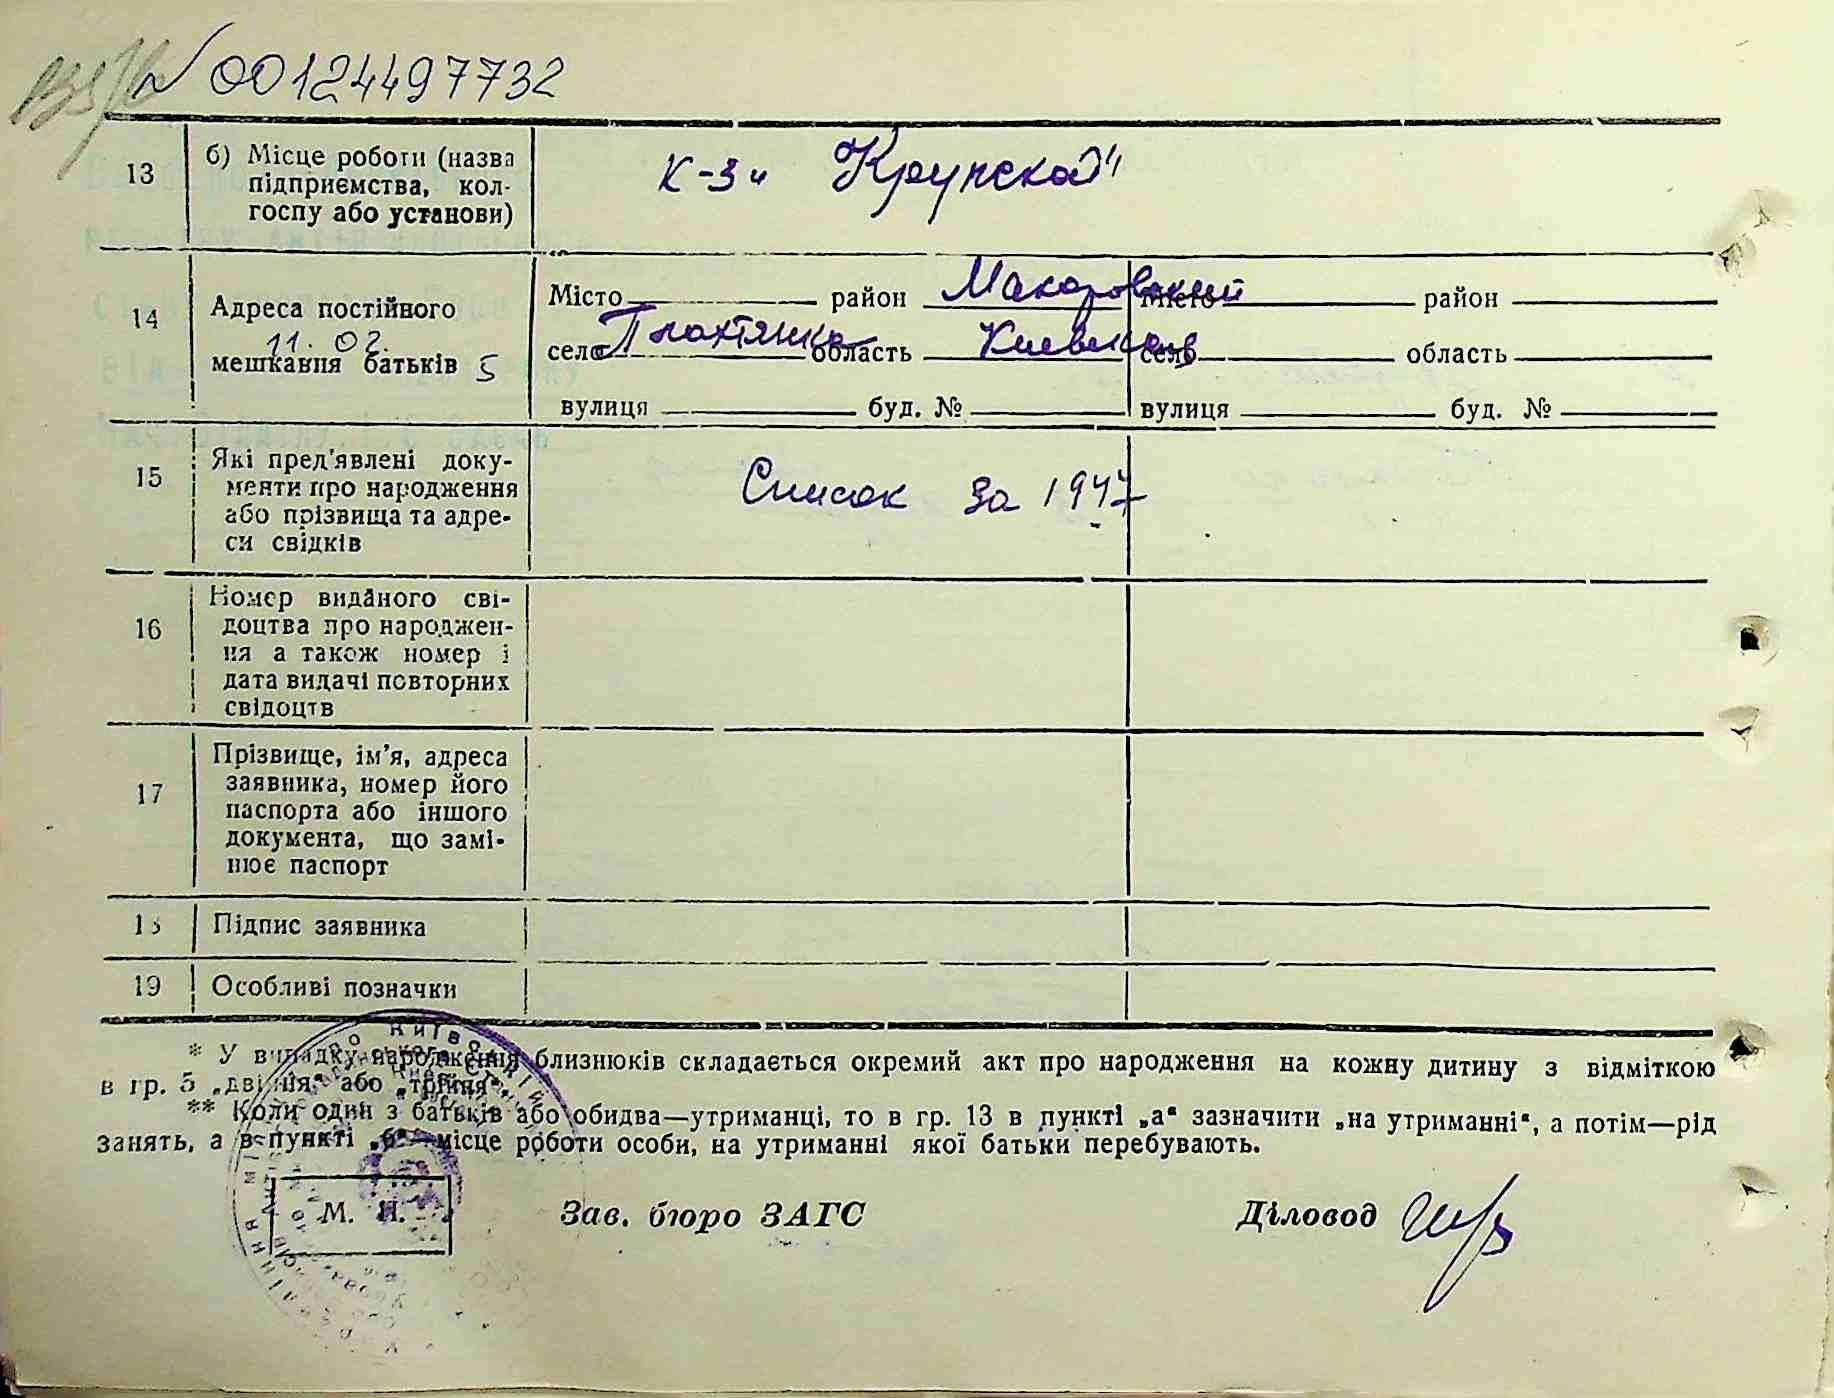 № 00124497732
13 б) Місце роботи (назва
підприємства, кол-
госпу або установи)
к-з „Крупской"
14 Адреса постійного
11.02.
мешкання батьків 5
Місто район Макаровский Місто район
село Плахтянка область Киевская село область
вулиця буд. № вулиця буд. №
15 Які пред'явлені доку-
менти про народження
або прізвища та адре-
си свідків
Список за 1947
16 Номер виданого сві-
доцтва про народжен-
ня а також номер і
дата видачі повторних
свідоцтв
17 Прізвище, ім'я, адреса
заявника, номер його
паспорта або іншого
документа, що замі-
нює паспорт
18 Підпис заявника
19 Особливі позначки
* У випадку народження близнюків складається окремий акт про народження на кожну дитину з відміткою
в гр. 5 „двійня" або „трійня".
** Коли один з батьків або обидва—утриманці, то в гр. 13 в пункті „а" зазначити „на утриманні", а потім—рід
занять, а в пункті „б"—місце роботи особи, на утриманні якої батьки перебувають.
М. П. Зав. бюро ЗАГС Діловод